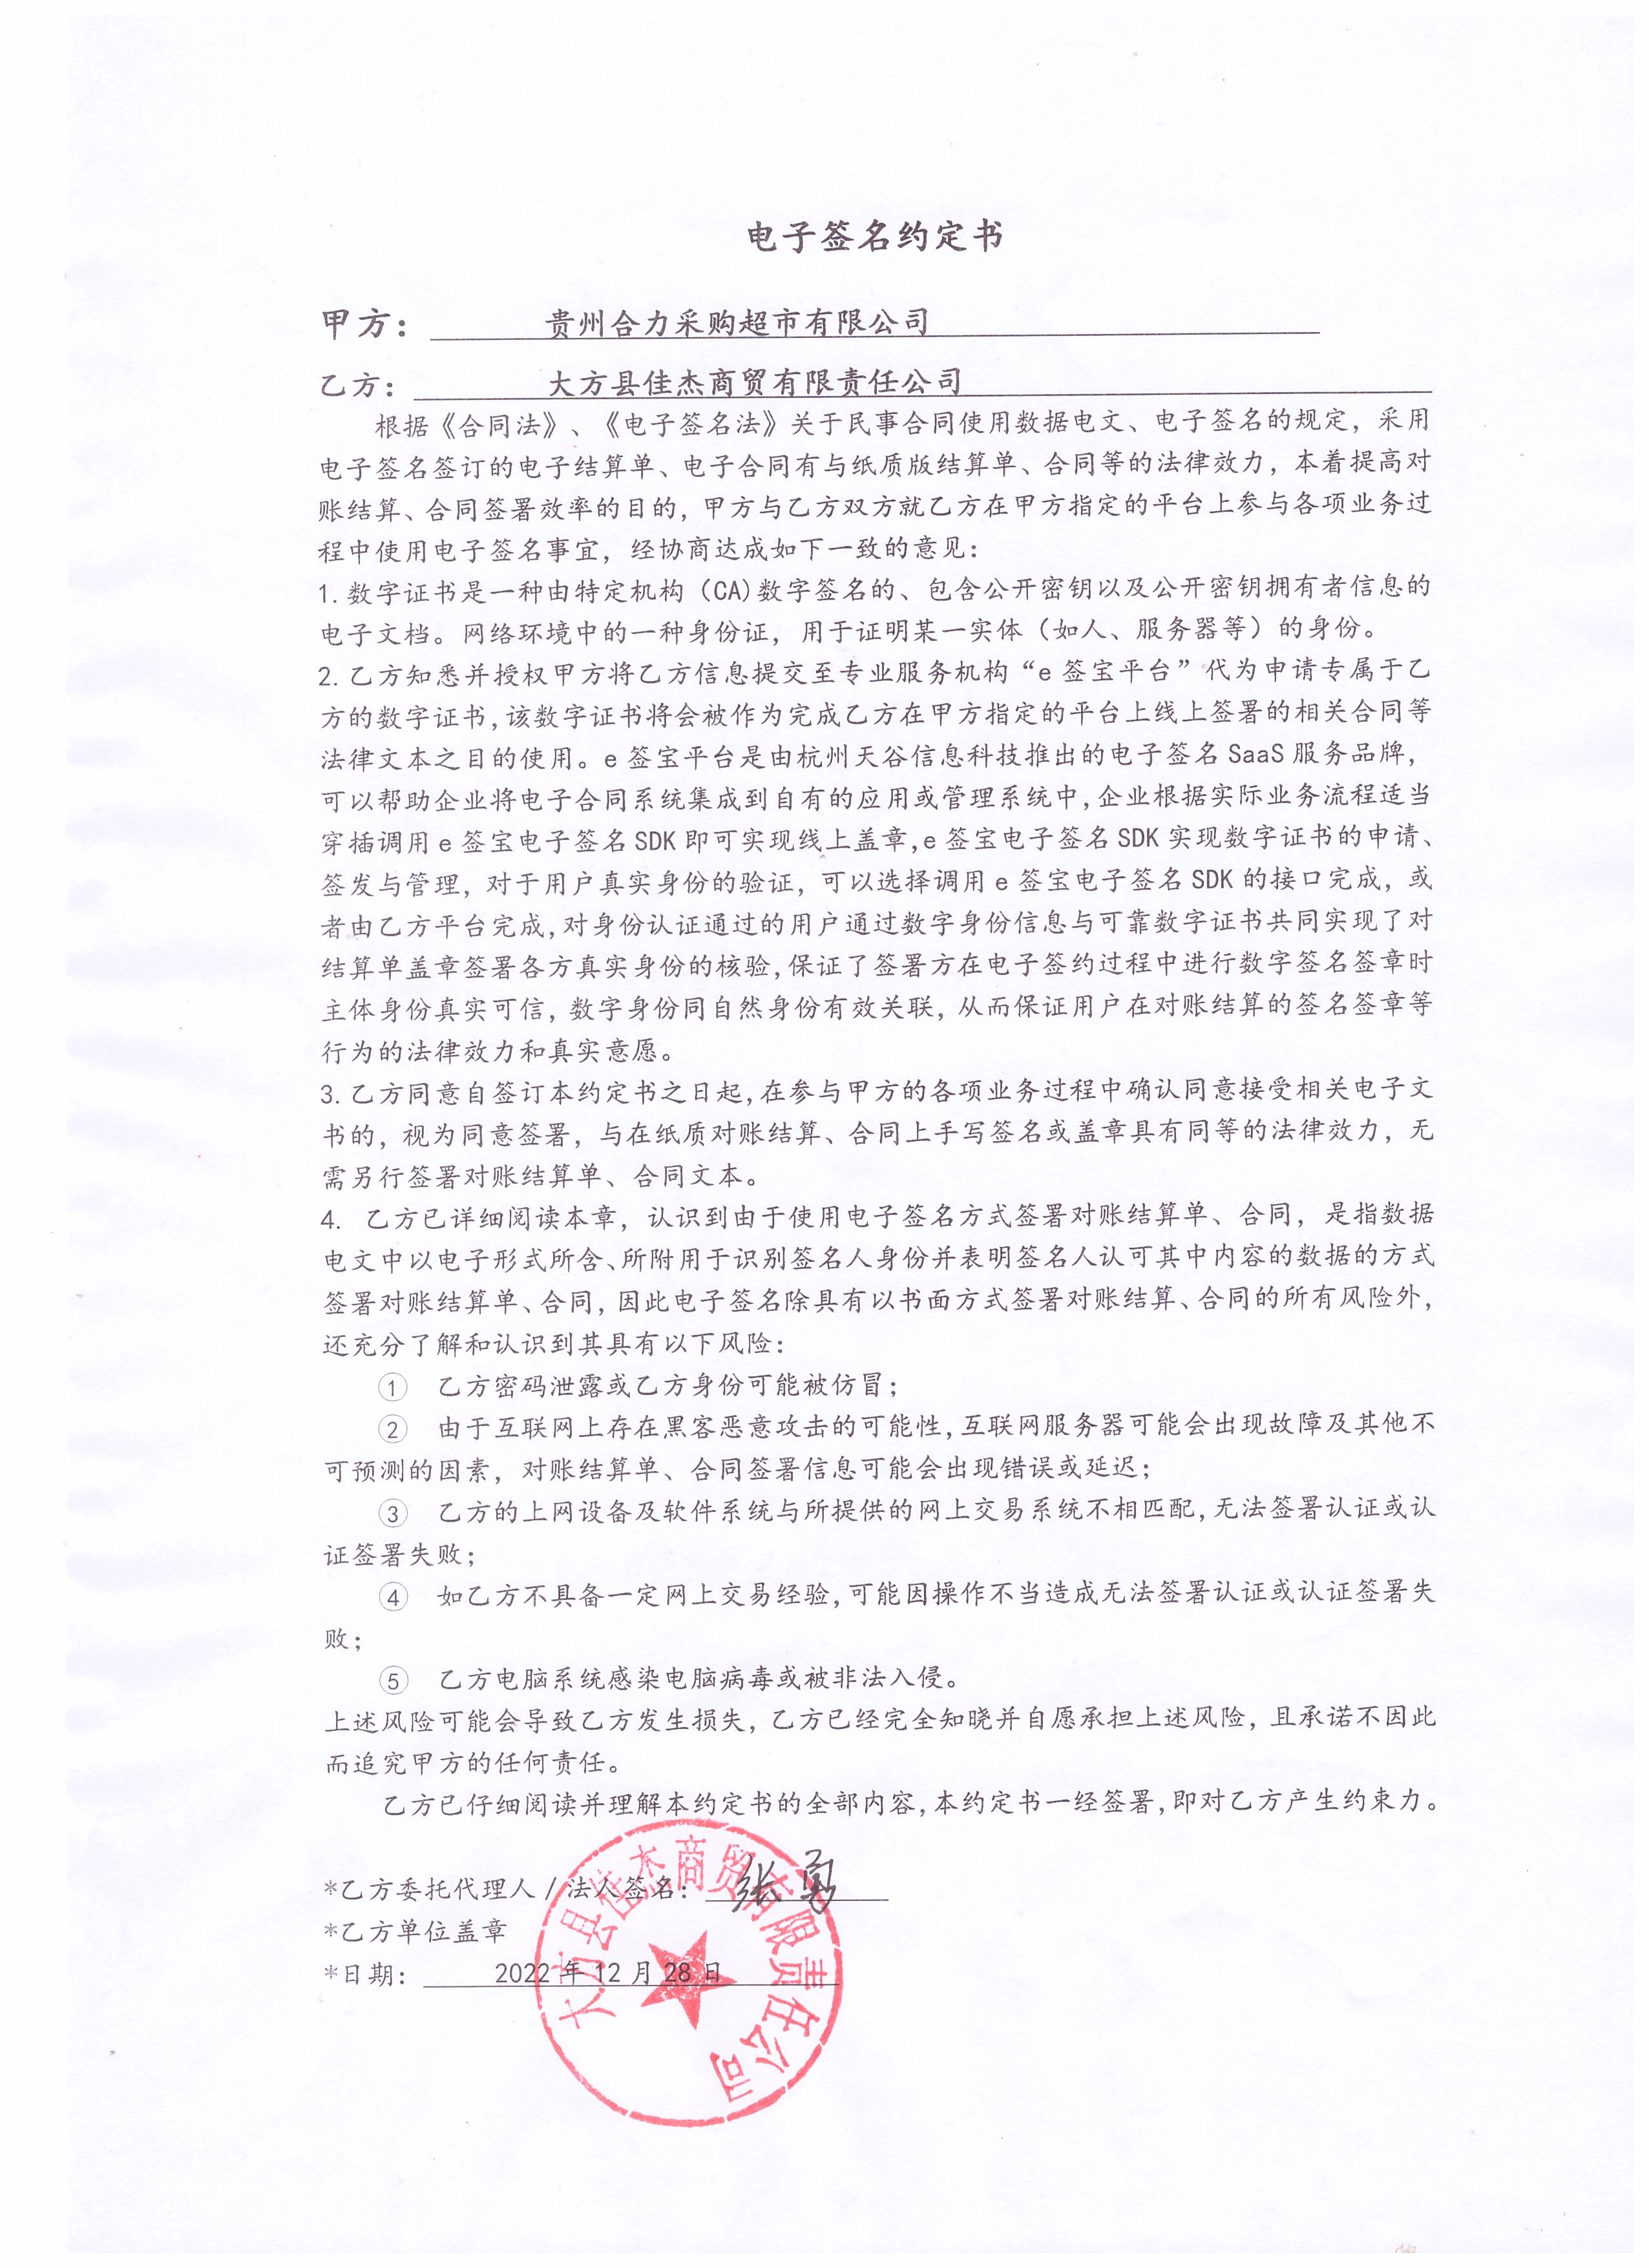 电子签名约定书
甲方：贵州合力采购超市有限公司
乙方：大方县佳杰商贸有限责任公司
根据《合同法》、《电子签名法》关于民事合同使用数据电文、电子签名的规定，采用
电子签名签订的电子结算单、电子合同有与纸质版结算单、合同等的法律效力，本着提高对
账结算、合同签署效率的目的，甲方与乙方双方就乙方在甲方指定的平台上参与各项业务过
程中使用电子签名事宜，经协商达成如下一致的意见：
1.数字证书是一种由特定机构（CA)数字签名的、包含公开密钥以及公开密钥拥有者信息的
电子文档。网络环境中的一种身份证，用于证明某一实体（如人、服务器等）的身份。
2.乙方知悉并授权甲方将乙方信息提交至专业服务机构“e签宝平台”代为申请专属于乙
方的数字证书,该数字证书将会被作为完成乙方在甲方指定的平台上线上签署的相关合同等
法律文本之目的使用。e签宝平台是由杭州天谷信息科技推出的电子签名SaaS服务品牌，
可以帮助企业将电子合同系统集成到自有的应用或管理系统中,企业根据实际业务流程适当
穿插调用e签宝电子签名SDK即可实现线上盖章,e签宝电子签名SDK实现数字证书的申请、
签发与管理，对于用户真实身份的验证，可以选择调用e签宝电子签名SDK的接口完成，或
者由乙方平台完成,对身份认证通过的用户通过数字身份信息与可靠数字证书共同实现了对
结算单盖章签署各方真实身份的核验,保证了签署方在电子签约过程中进行数字签名签章时
主体身份真实可信，数字身份同自然身份有效关联，从而保证用户在对账结算的签名签章等
行为的法律效力和真实意愿。
3.乙方同意自签订本约定书之日起,在参与甲方的各项业务过程中确认同意接受相关电子文
书的，视为同意签署，与在纸质对账结算、合同上手写签名或盖章具有同等的法律效力，无
需另行签署对账结算单、合同文本。
4. 乙方已详细阅读本章，认识到由于使用电子签名方式签署对账结算单、合同，是指数据
电文中以电子形式所含、所附用于识别签名人身份并表明签名人认可其中内容的数据的方式
签署对账结算单、合同，因此电子签名除具有以书面方式签署对账结算、合同的所有风险外，
还充分了解和认识到其具有以下风险：
① 乙方密码泄露或乙方身份可能被仿冒；
② 由于互联网上存在黑客恶意攻击的可能性,互联网服务器可能会出现故障及其他不
可预测的因素，对账结算单、合同签署信息可能会出现错误或延迟；
③ 乙方的上网设备及软件系统与所提供的网上交易系统不相匹配,无法签署认证或认
证签署失败；
④ 如乙方不具备一定网上交易经验,可能因操作不当造成无法签署认证或认证签署失
败；
⑤ 乙方电脑系统感染电脑病毒或被非法入侵。
上述风险可能会导致乙方发生损失，乙方已经完全知晓并自愿承担上述风险，且承诺不因此
而追究甲方的任何责任。
乙方已仔细阅读并理解本约定书的全部内容,本约定书一经签署,即对乙方产生约束力。
*乙方委托代理人/法人签名：张勇
*乙方单位盖章
*日期：2022年12月28日
大方县佳杰商贸有限责任公司